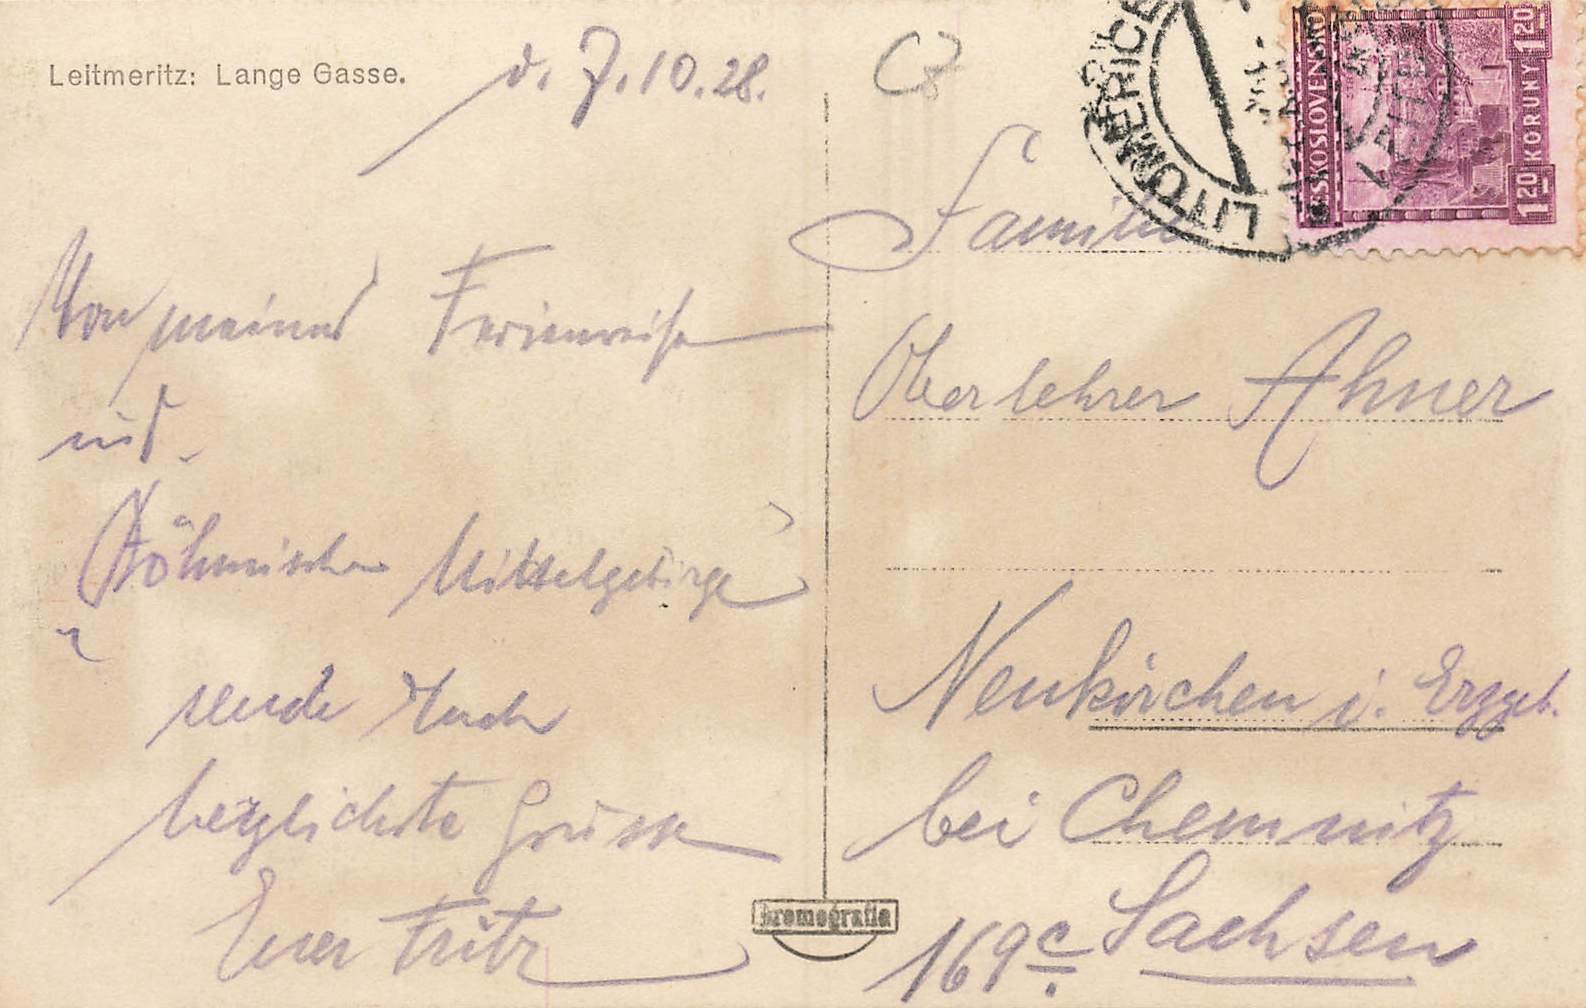 Leitmeritz: Lange Gasse.
d. 7.10.28.
Von meiner Ferienreise
ins
Böhmische Mittelgebirge
sende Euch
herzlichste Grüsse
Euer Fritz
CZ
LITOMĚŘICE
LEIT
ČESKOSLOVENSKO
1.20 KORUNY 1.20
Familie
Oberlehrer Ahner
Neukirchen i. Erzgeb.
bei Chemnitz
169c Sachsen
bromografia